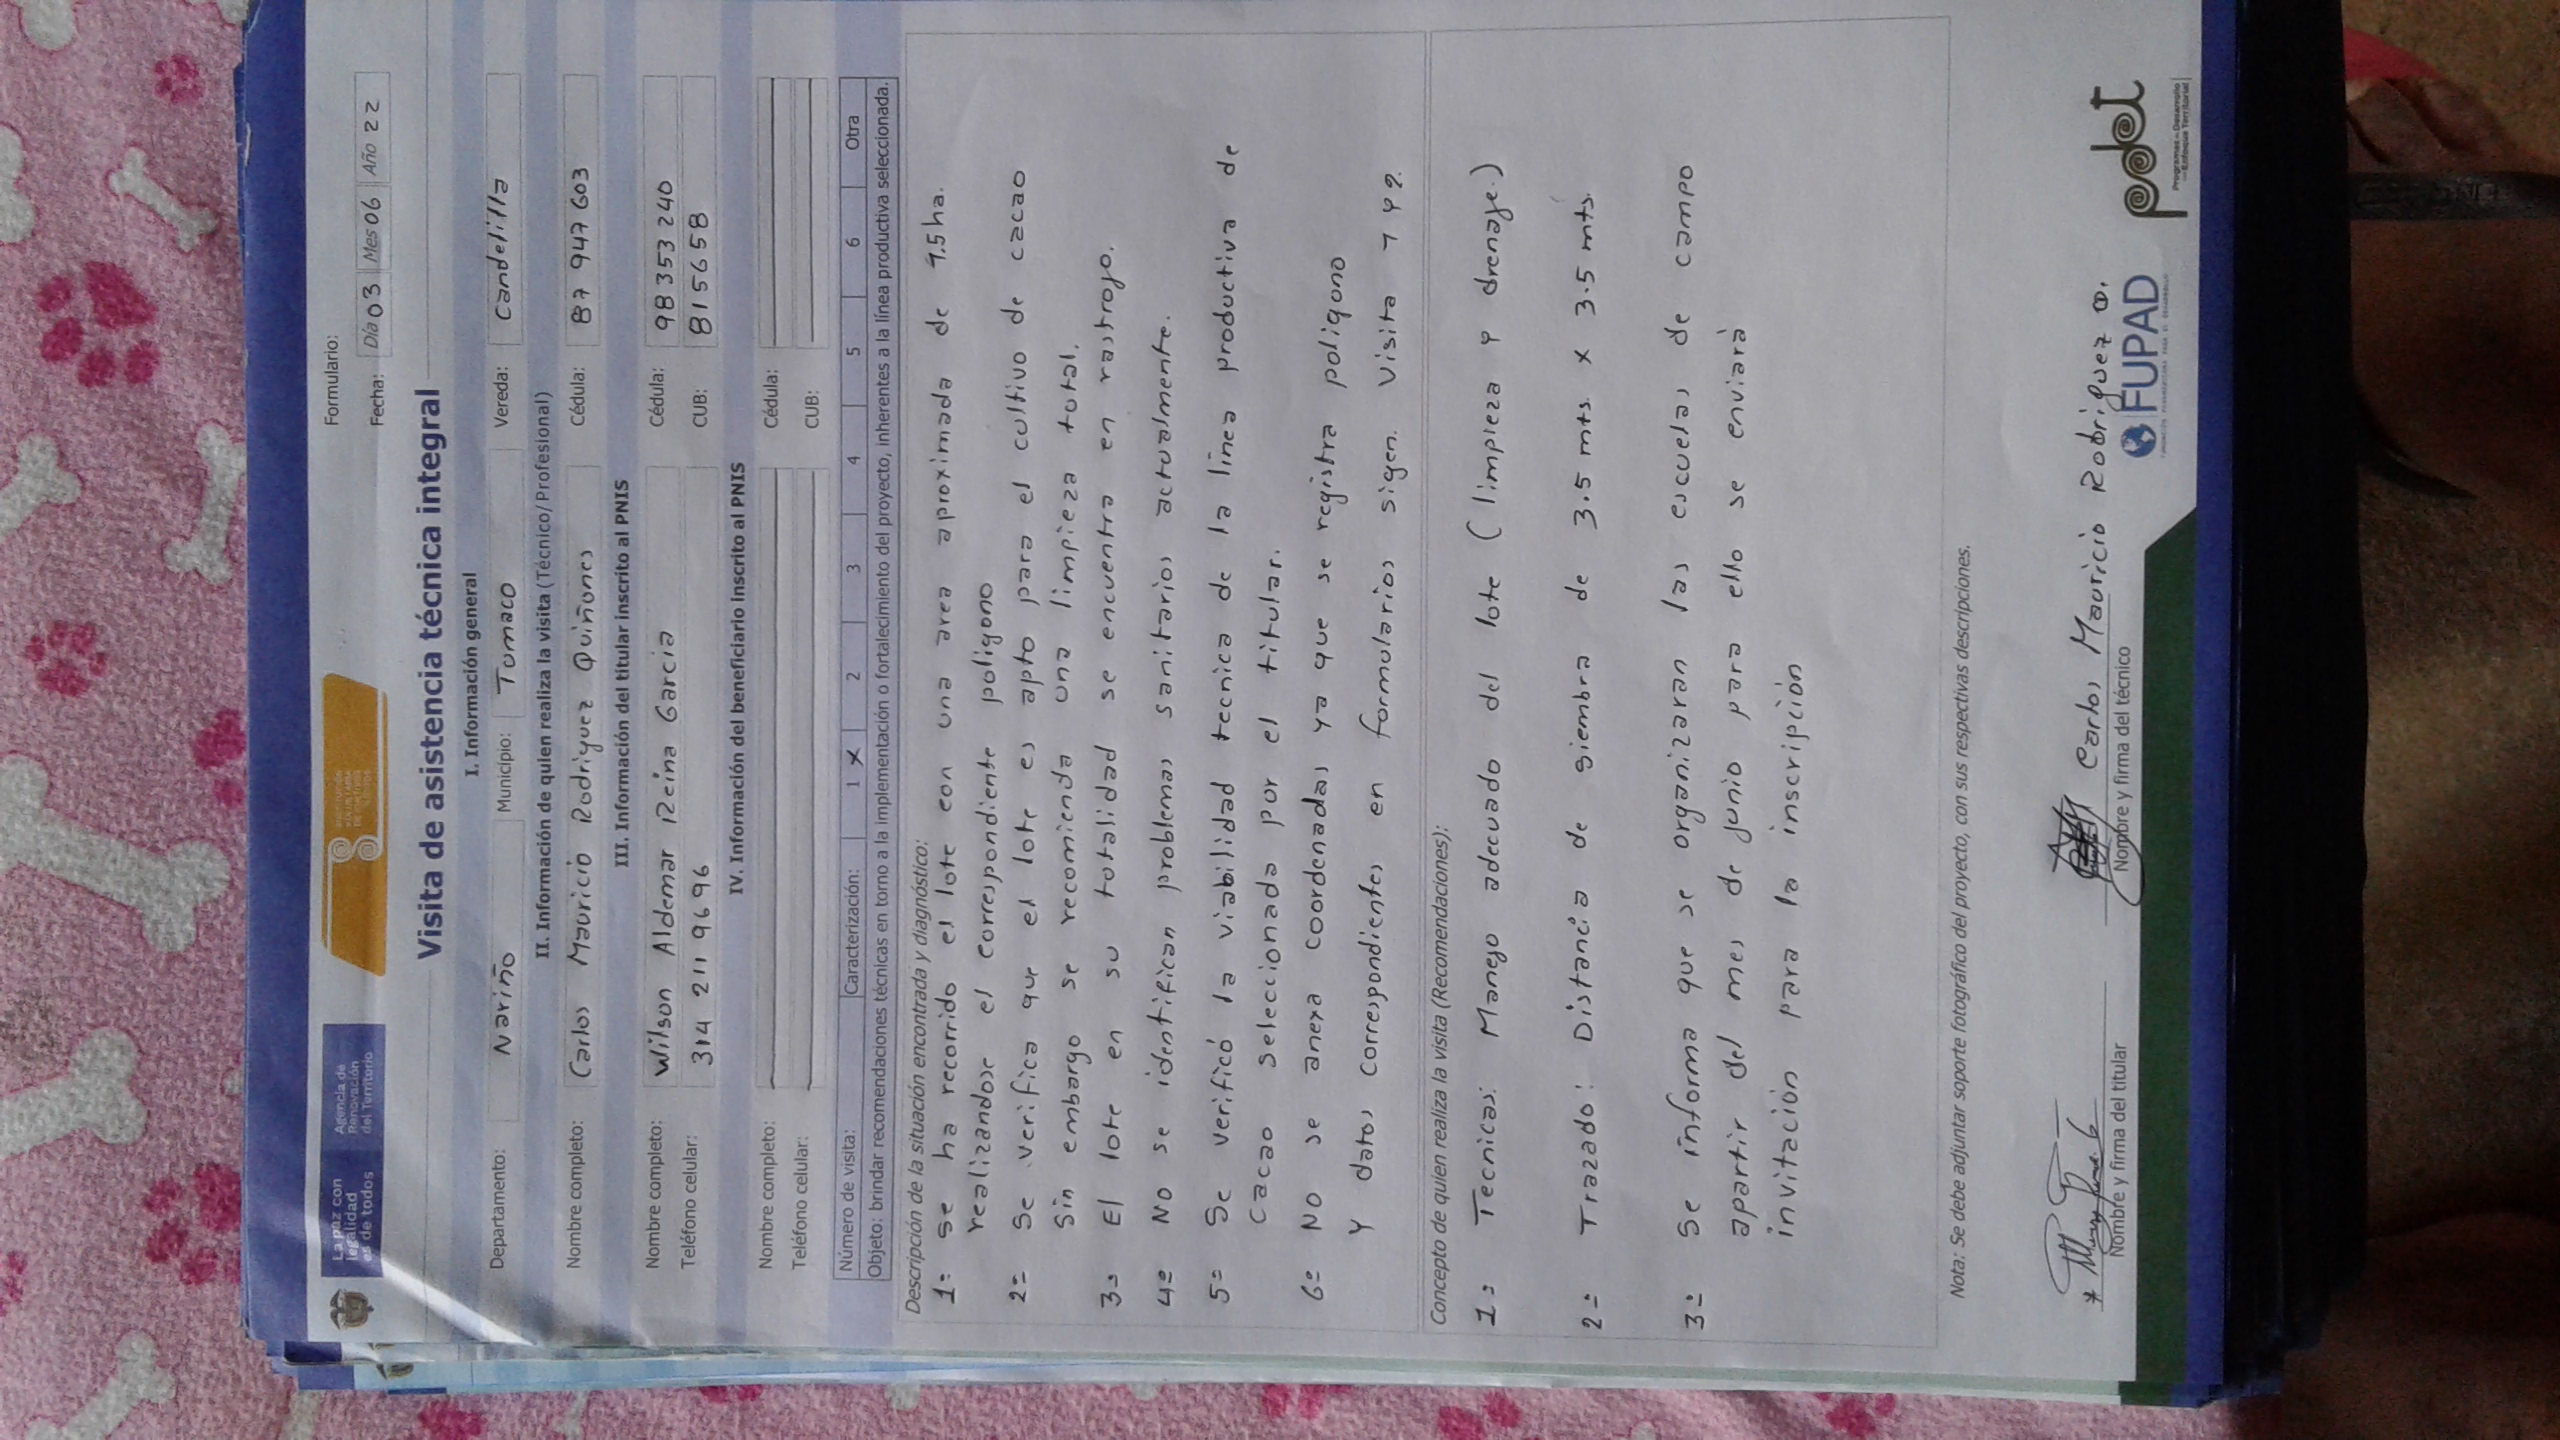 La paz con
legalidad
es de todos
Agencia de
Renovación
del Territorio
Formulario:
Fecha: Día 03 Mes 06 Año 22
Visita de asistencia técnica integral
I. Información general
Departamento: Nariño Municipio: Tumaco Vereda: Candelilla
II. Información de quien realiza la visita (Técnico/ Profesional)
Nombre completo: Carlos Mauricio Rodriguez Quiñones Cédula: 87 947 603
III. Información del titular inscrito al PNIS
Nombre completo: Wilson Aldemar Reina Garcia Cédula: 98 353 240
Teléfono celular: 314 211 9696 CUB: 815658
IV. Información del beneficiario inscrito al PNIS
Nombre completo: Cédula:
Teléfono celular: CUB:
Número de visita: Caracterización: 1 X 2 3 4 5 6 Otra
Objeto: brindar recomendaciones técnicas en torno a la implementación o fortalecimiento del proyecto, inherentes a la línea productiva seleccionada.
Descripción de la situación encontrada y diagnóstico:
1= se ha recorrido el lote con una area aproximada de 1.5 ha.
realizandose el correspondiente poligono
2= Se verifica que el lote es apto para el cultivo de cacao
sin embargo se recomienda una limpieza total.
3= El lote en su totalidad se encuentra en rastrojo.
4= No se identifican problemas sanitarios actualmente.
5= Se verificó la viabilidad tecnica de la línea productiva de
Cacao seleccionada por el titular.
6= No se anexa coordenadas ya que se registra poligono
y datos correspondientes en formularios sigen. visita 1 y 2.
Concepto de quien realiza la visita (Recomendaciones):
1= Tecnicas: Manejo adecuado del lote (limpieza y drenaje.)
2= Trazado: Distancia de siembra de 3.5 mts. x 3.5 mts.
3= Se informa que se organizaran las escuelas de campo
apartir del mes de junio para ello se enviará
invitación para la inscripción
Nota: Se debe adjuntar soporte fotográfico del proyecto, con sus respectivas descripciones.
Carlos Mauricio Rodriguez Q.
Nombre y firma del titular Nombre y firma del técnico
FUPAD
pdet
Programas de Desarrollo
con Enfoque Territorial